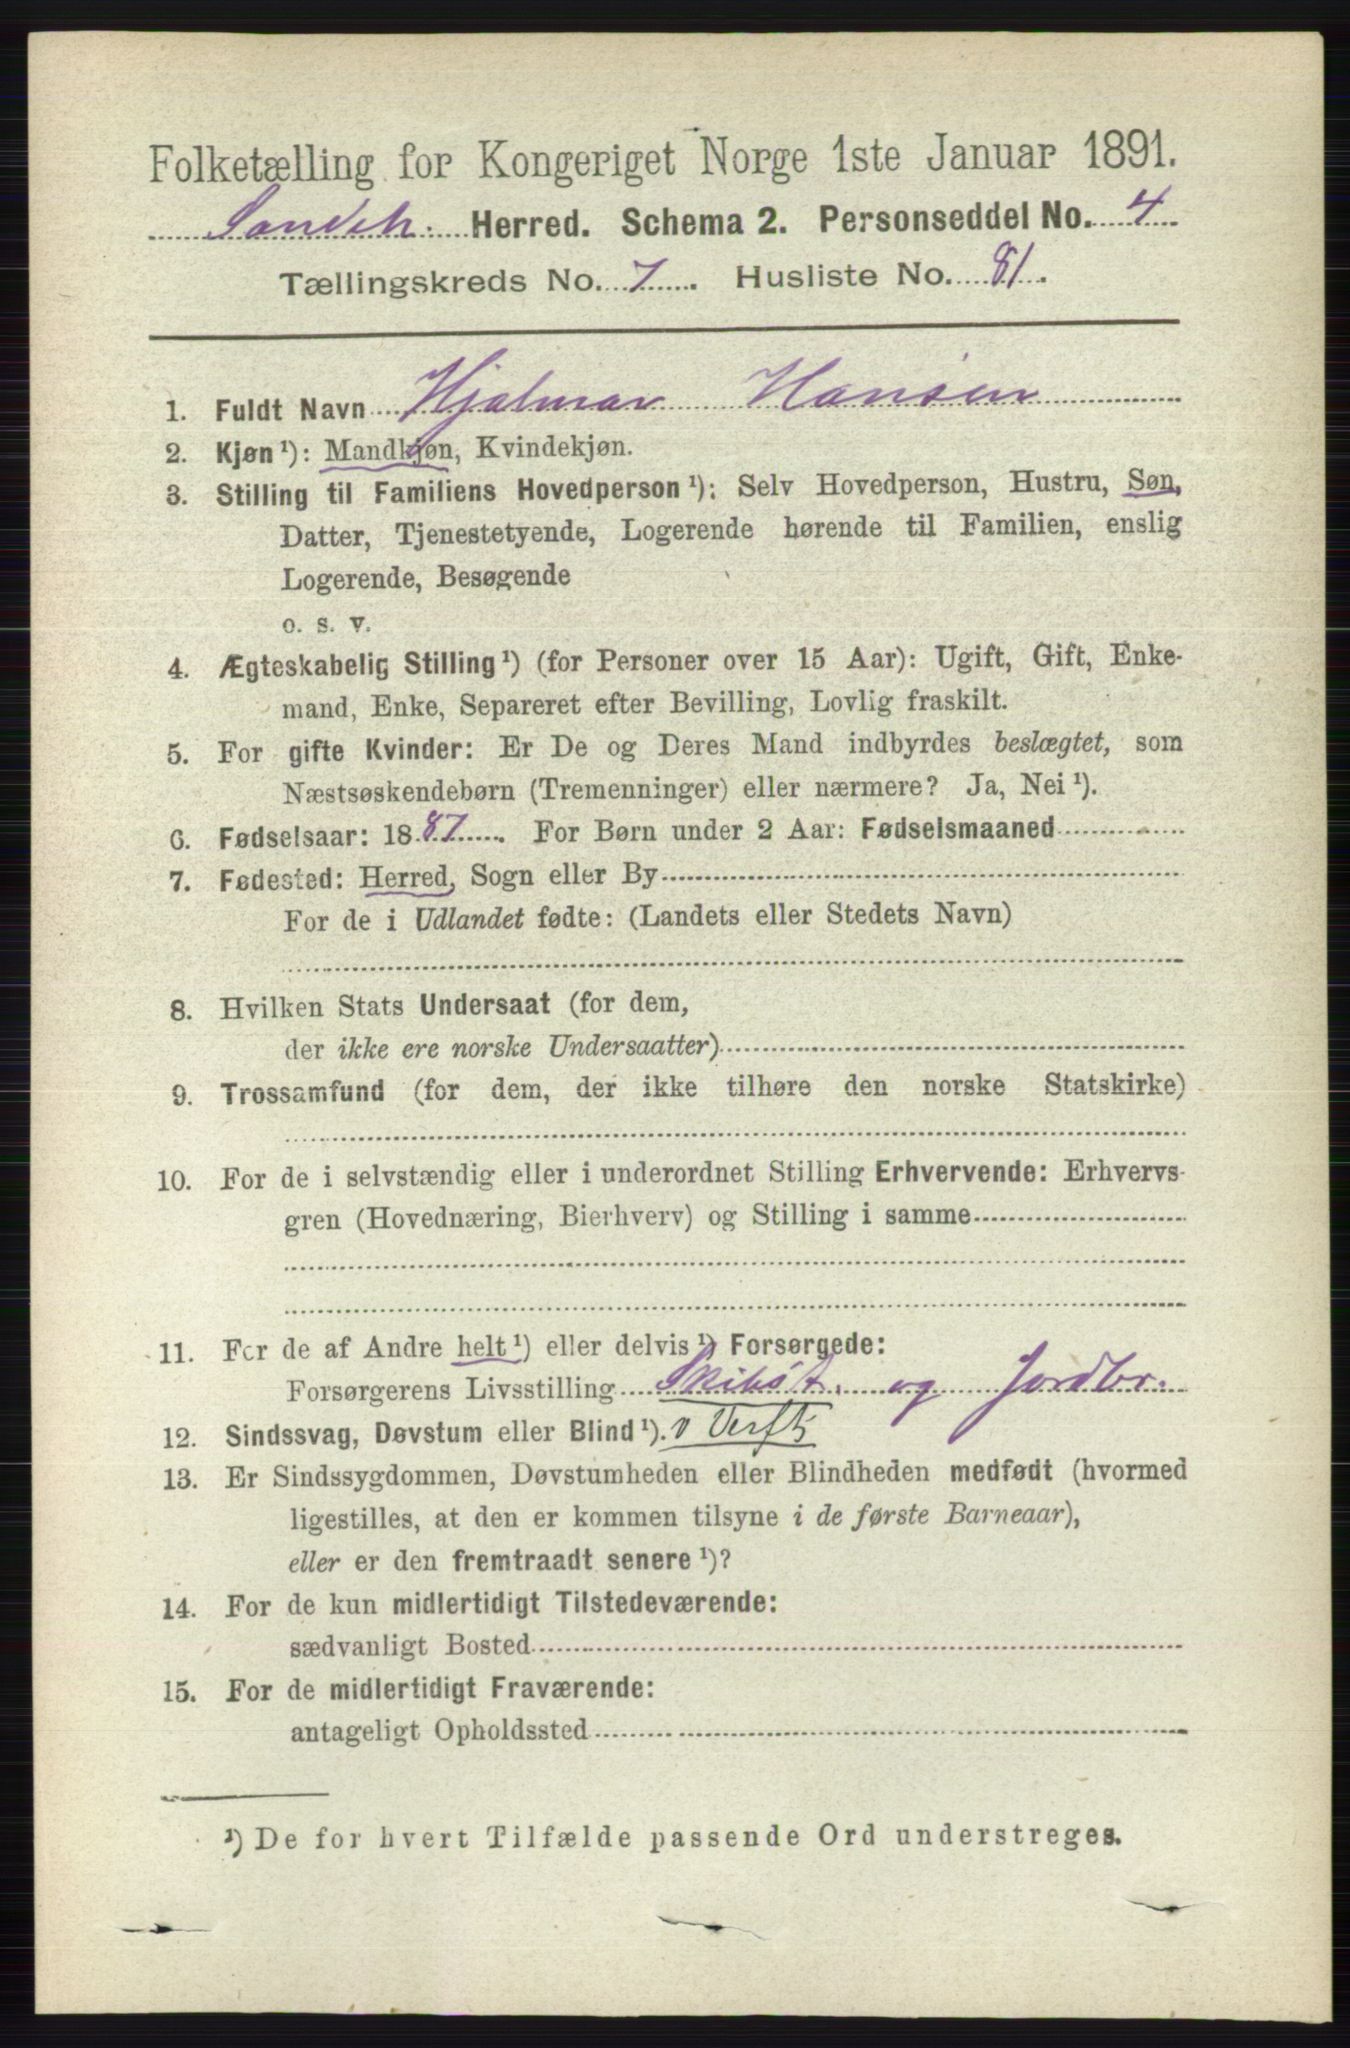 Folketælling for Kongeriget Norge 1ste Januar 1891.
Sandeh. Herred. Schema 2. Personseddel No. 4
Tællingskreds No. 7. Husliste No. 81.
1. Fuldt Navn Hjalmar Hansen
2. Kjøn ¹): Mandkjøn, Kvindekjøn.
3. Stilling til Familiens Hovedperson ¹): Selv Hovedperson, Hustru, Søn,
Datter, Tjenestetyende, Logerende hørende til Familien, enslig
Logerende, Besøgende
o. s. v.
4. Ægteskabelig Stilling ¹) (for Personer over 15 Aar): Ugift, Gift, Enke-
mand, Enke, Separeret efter Bevilling, Lovlig fraskilt.
5. For gifte Kvinder: Er De og Deres Mand indbyrdes beslægtet, som
Næstsøskendebørn (Tremenninger) eller nærmere? Ja, Nei ¹).
6. Fødselsaar: 1887. For Børn under 2 Aar: Fødselsmaaned
7. Fødested: Herred, Sogn eller By
For de i Udlandet fødte: (Landets eller Stedets Navn)
8. Hvilken Stats Undersaat (for dem,
der ikke ere norske Undersaatter)
9. Trossamfund (for dem, der ikke tilhøre den norske Statskirke)
10. For de i selvstændig eller i underordnet Stilling Erhvervende: Erhvervs-
gren (Hovednæring, Bierhverv) og Stilling i samme
11. For de af Andre helt ¹) eller delvis ¹) Forsørgede:
Forsørgerens Livsstilling Skibst. og Jordbr.
12. Sindssvag, Døvstum eller Blind ¹). v Verft
13. Er Sindssygdommen, Døvstumheden eller Blindheden medfødt (hvormed
ligestilles, at den er kommen tilsyne i de første Barneaar),
eller er den fremtraadt senere ¹)?
14. For de kun midlertidigt Tilstedeværende:
sædvanligt Bosted
15. For de midlertidigt Fraværende:
antageligt Opholdssted
¹) De for hvert Tilfælde passende Ord understreges.